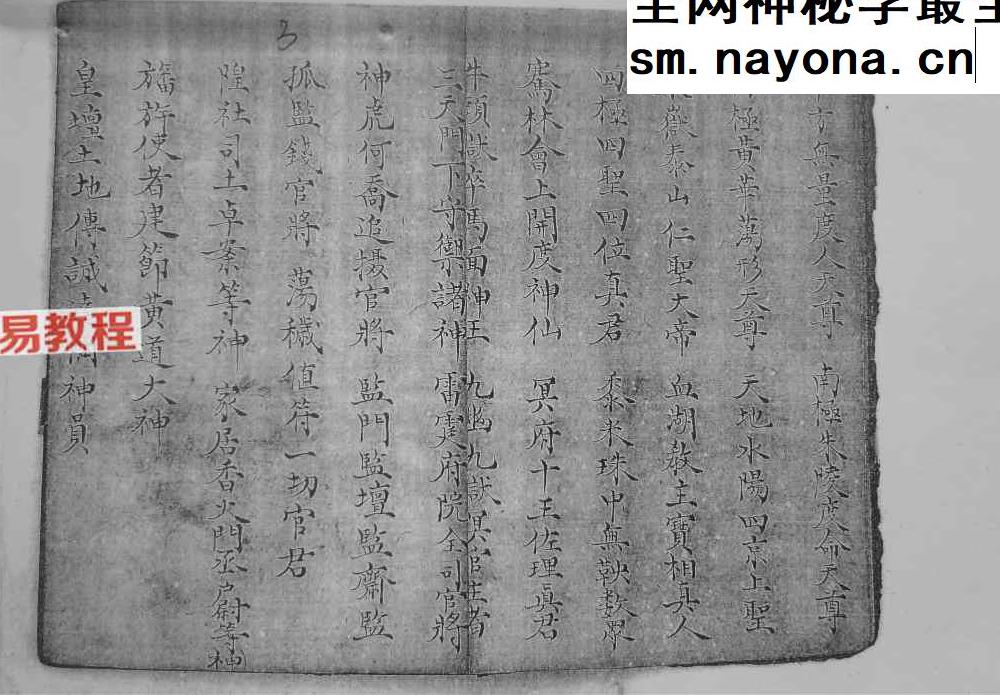 全网神秘学最全
sm.nayona.cn
易教程
3
方無量度人天尊 南極朱陵度命天尊
極黃華蕩形天尊 天地水陽四京上聖
嶽泰山仁聖大帝 血湖教主寶相真人
四極四聖四位真君 黍米珠中無鞅數眾
騫林會上開度神仙 冥府十王佐理真君
牛頭獄卒馬面神王 九幽九獄冥官主者
三天門下守禦諸神 雷霆府院全司官將
神虎何喬追攝官將 監門監壇監齋監
孤監錢官將 蕩穢值符一切官君
隍社司土卓案等神 家居香火門丞戶尉等神
旛旂使者建節黃道大神
皇壇土地傳誠 神員